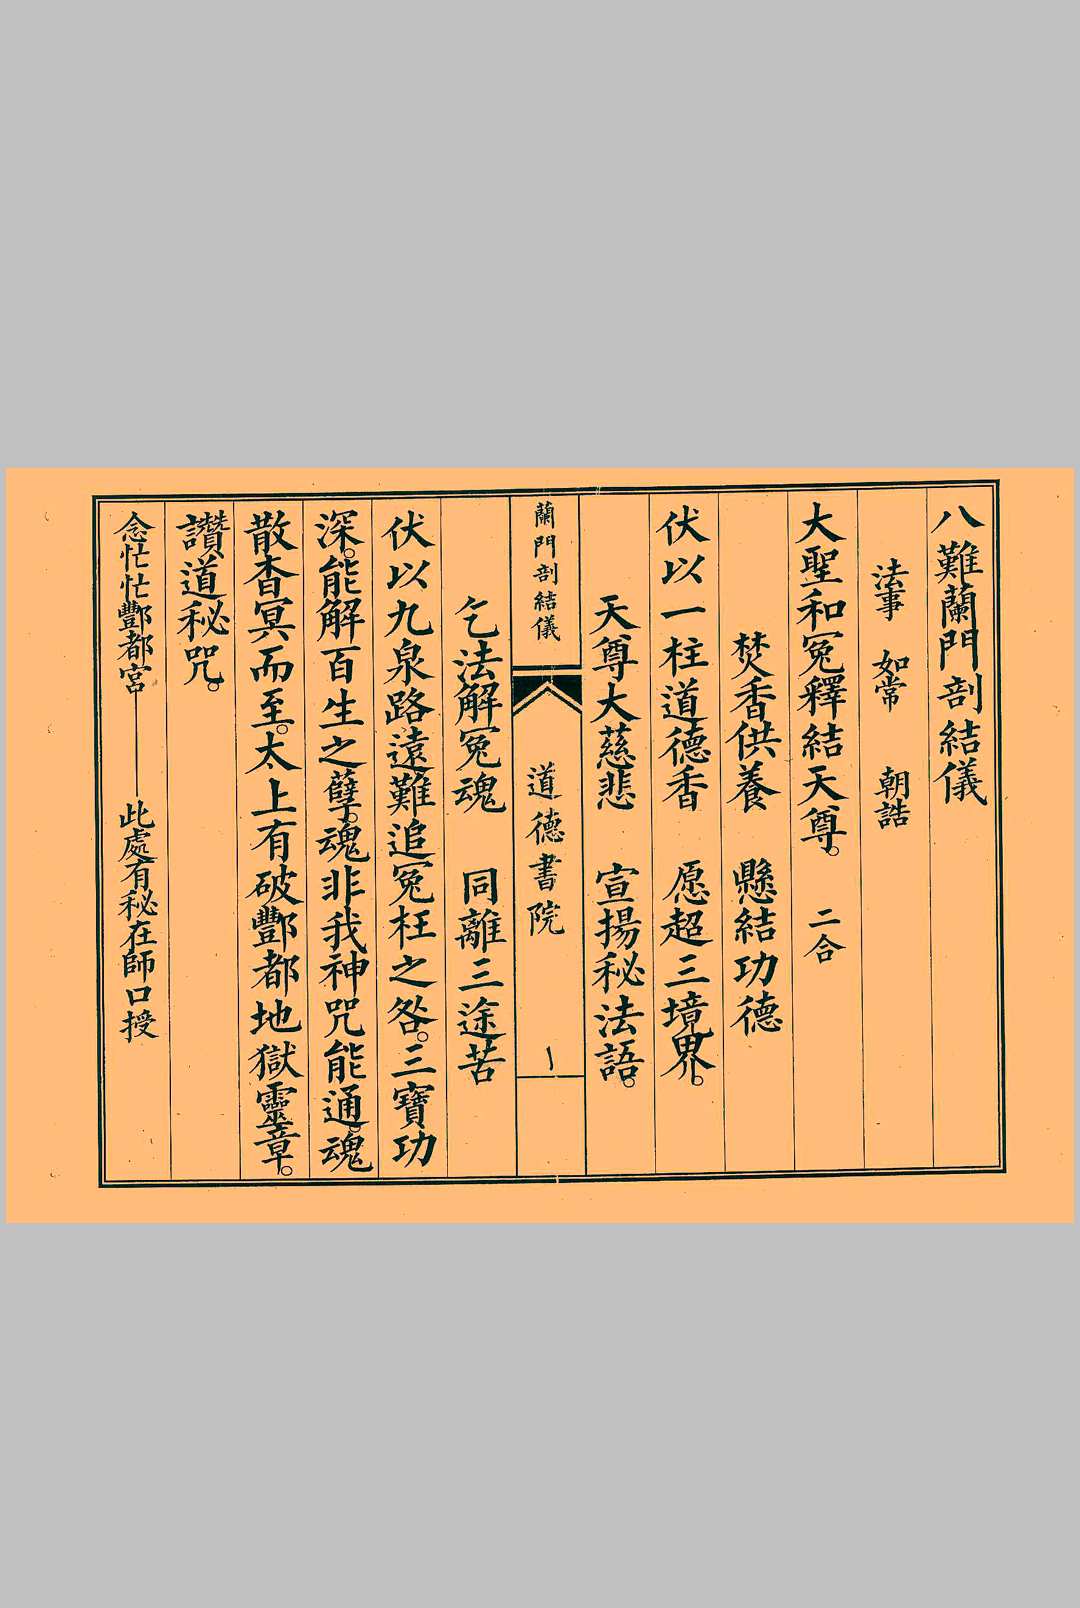 八難蘭門剖結儀
法事 如常 朝誥
大聖和冤釋結天尊。 二合
焚香供養 懸結功德
伏以一柱道德香 愿超三境界。
天尊大慈悲 宣揚秘法語。
蘭門剖結儀 道德書院 一
乞法解冤魂 同離三途苦
伏以九泉路遠難追冤枉之咎。三寶功
深。能解百生之孽。魂非我神咒能通。魂
散杳冥而至。太上有破酆都地獄靈章。
讚道秘咒。
念忙忙酆都宮——此處有秘在師口授